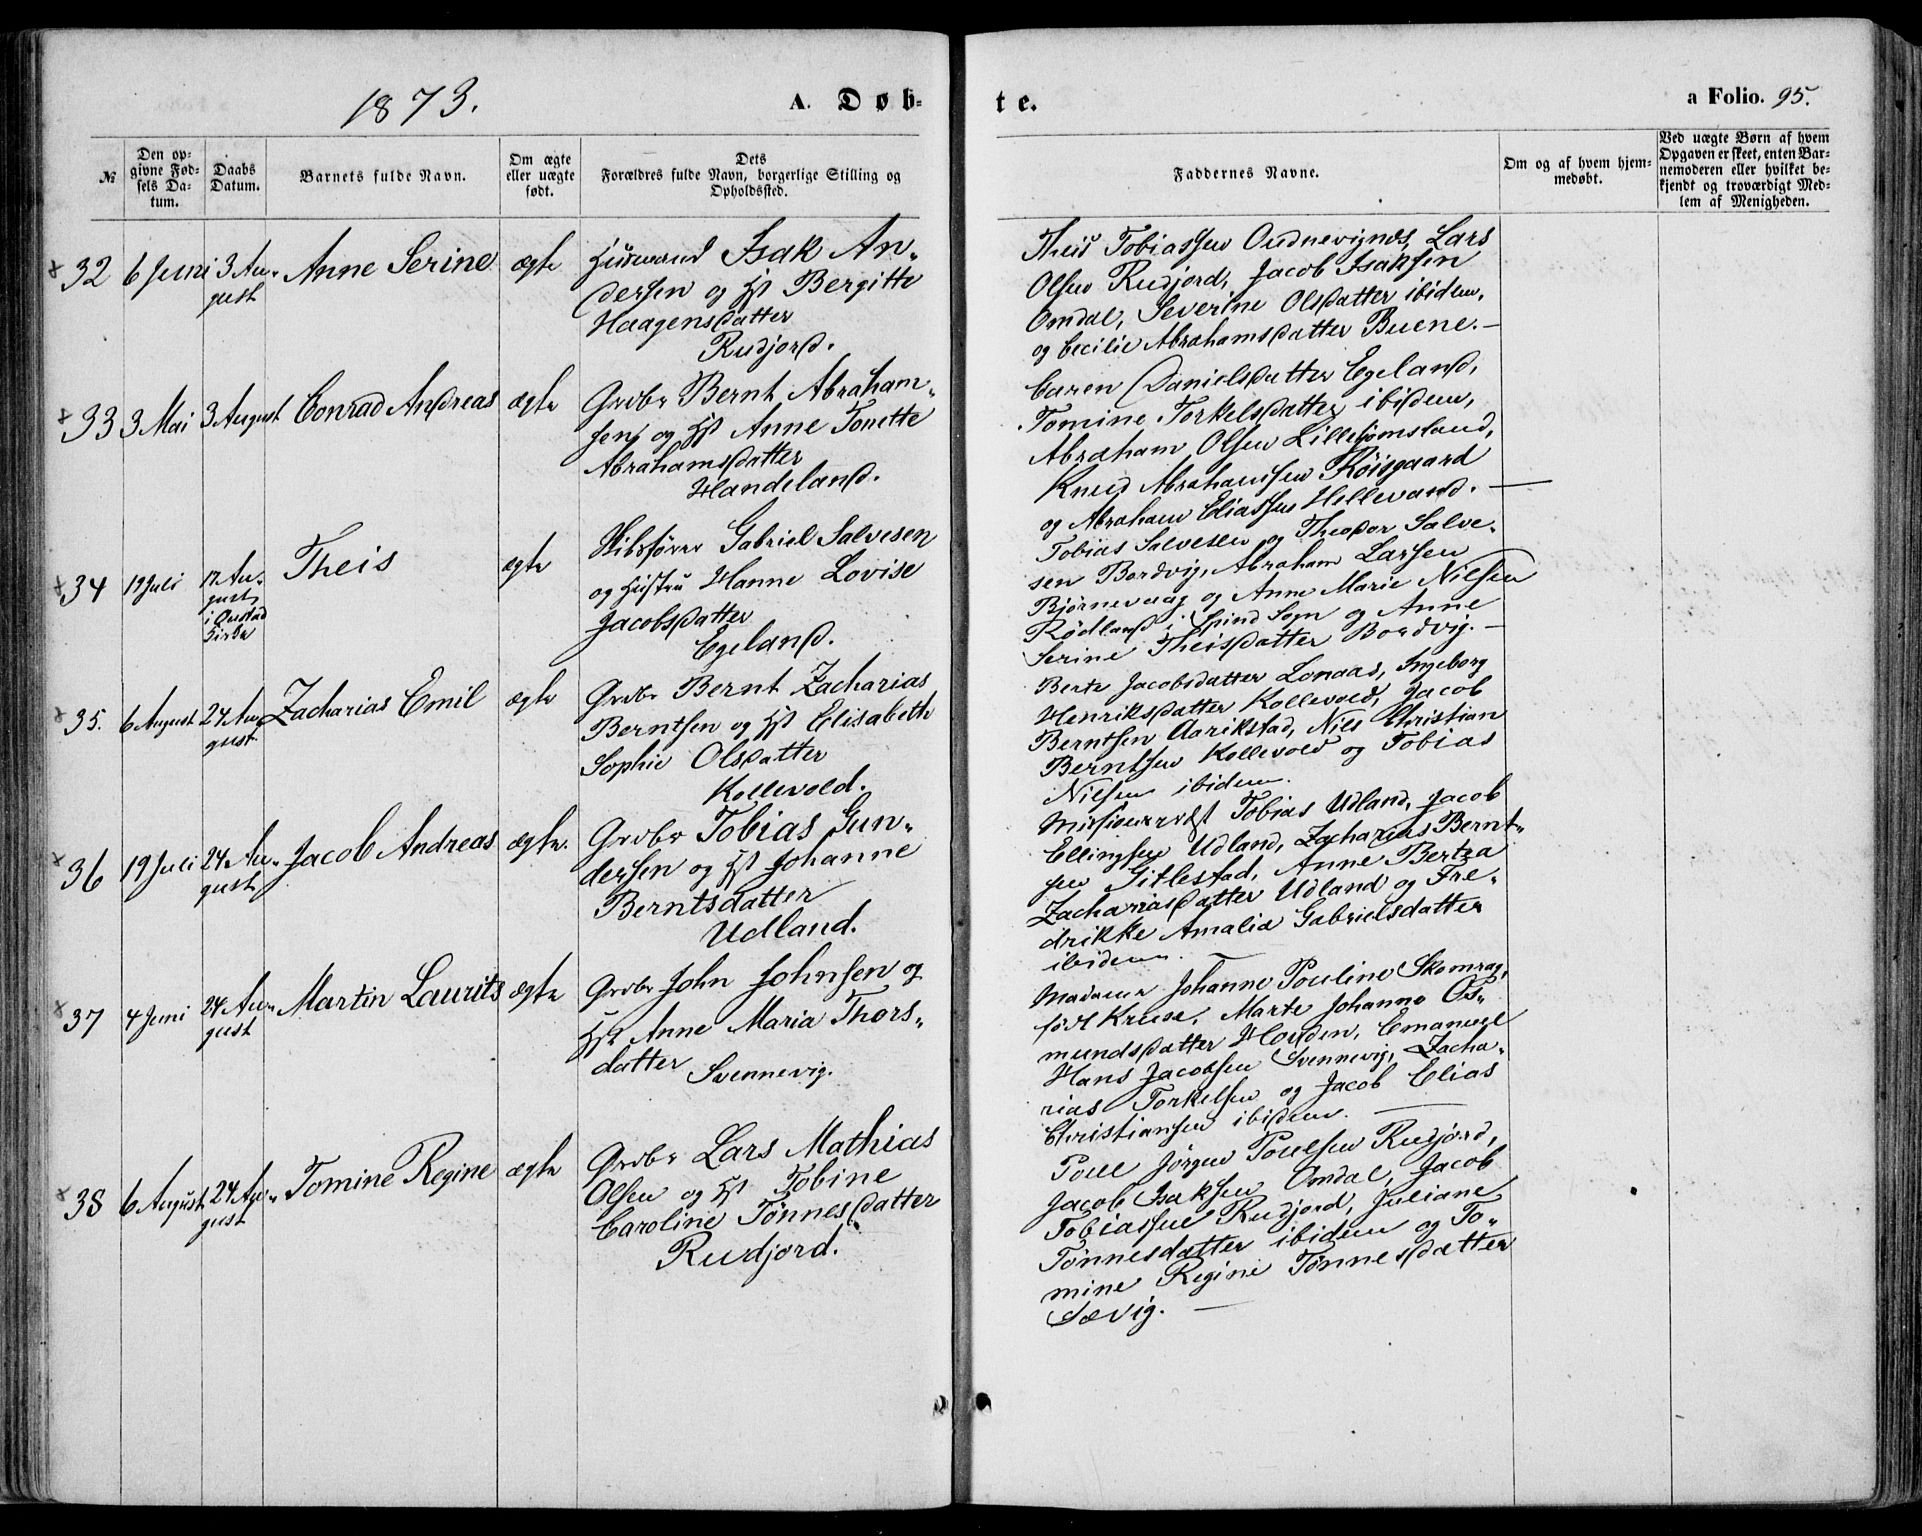 1873.
A. Døb-
te.
a Folio. 95.
№
Den op-
givne Fød-
sels Da-
tum.
Daabs
Datum.
Barnets fulde Navn.
Om ægte
eller uægte
født.
Dets
Forældres fulde Navn, borgerlige Stilling og
Opholdssted.
Faddernes Navne.
Om og af hvem hjem-
medøbt.
Ved uægte Børn af hvem
Opgaven er skeet, enten Bar-
nemoderen eller hvilket be-
kjendt og troværdigt Med-
lem af Menigheden.
× 32
6 Juni
3 Au-
gust
Anne Serine
ægte
Husmand Isak An-
dersen og Hst Bergitte
Haagensdatter
Rudjord.
Theis Tobiassen Oudnevignes, Lars
Olsen Rudjord, Jacob Isaksen
Omdal, Severine Olsdatter ibidem,
og Cecilie Abrahamsdatter Buene.
× 33
3 Mai
3 August
Conrad Andreas
ægte
Grdbr Bernt Abraham-
sen og Hst Anne Tonette
Abrahamsdatter
Handeland.
Caren Danielsdatter Egeland,
Tomine Torkelsdatter ibidem,
Abraham Olsen Lillejomsland,
Knud Abrahamsen Röisgaard
og Abraham Eliassen Hellevand.
× 34
19 Juli
17 Au-
gust
i Oustad
Kirke
Theis
ægte
Skibsfører Gabriel Salvesen
og Hustru Hanne Lovise
Jacobsdatter
Egeland.
Tobias Salvesen og Theodor Salve-
sen Bordvig, Abraham Larsen
Bjørnevaag og Anne Marie Nilsen
Rödland i Spind Sogn og Anne
Serine Theisdatter Bordvig.
× 35.
6 August
24 Au-
gust
Zacharias Emil
ægte
Grdbr Bernt Zacharias
Berntsen og Hst Elisabeth
Sophie Olsdatter
Kollevold.
Berte Jacobsdatter Lonaas, Ingeborg
Henriksdatter Kollevold, Jacob
Berntsen Aarikstad, Nils Christian
Berntsen Kollevold og Tobias
Nilsen ibidem.
× 36
19 Juli
24 Au-
gust
Jacob Andreas
ægte.
Grdbr Tobias Gun-
dersen og Hst Johanne
Berntsdatter
Udland.
Missionærpræst Tobias Udland, Jacob
Ellingsen Udland, Zacharias Bernt-
sen Gitlestad, Anne Bertea
Zachariasdatter Udland og Fre-
drikke Amalia Gabrielsdatter
ibidem.
× 37
4 Juni
24 Au-
gust
Martin Laurits
ægte
Grdbr John Johnsen og
Hst Anne Maria Thors-
datter
Svennevig.
Madame Johanne Pouline Skomrag,
født Kruse, Marte Johanne Os-
mundsdatter Houden, Emanuel
Hans Jacobsen Svennevig, Zacha-
rias Torkelsen og Jacob Elias
Christiansen ibidem.
× 38
6 August
24 Au-
gust
Tomine Regine
ægte
Grdbr Lars Mathias
Olsen og Hst Tobine
Caroline Tönnesdatter
Rudjord.
Poul Jörgen Poulsen Rudjord,
Jacob Isaksen Omdal, Jacob
Tobiassen Rudjord, Juliane
Tönnesdatter ibidem og To-
mine Regine Tönnesdatter
Sævig.